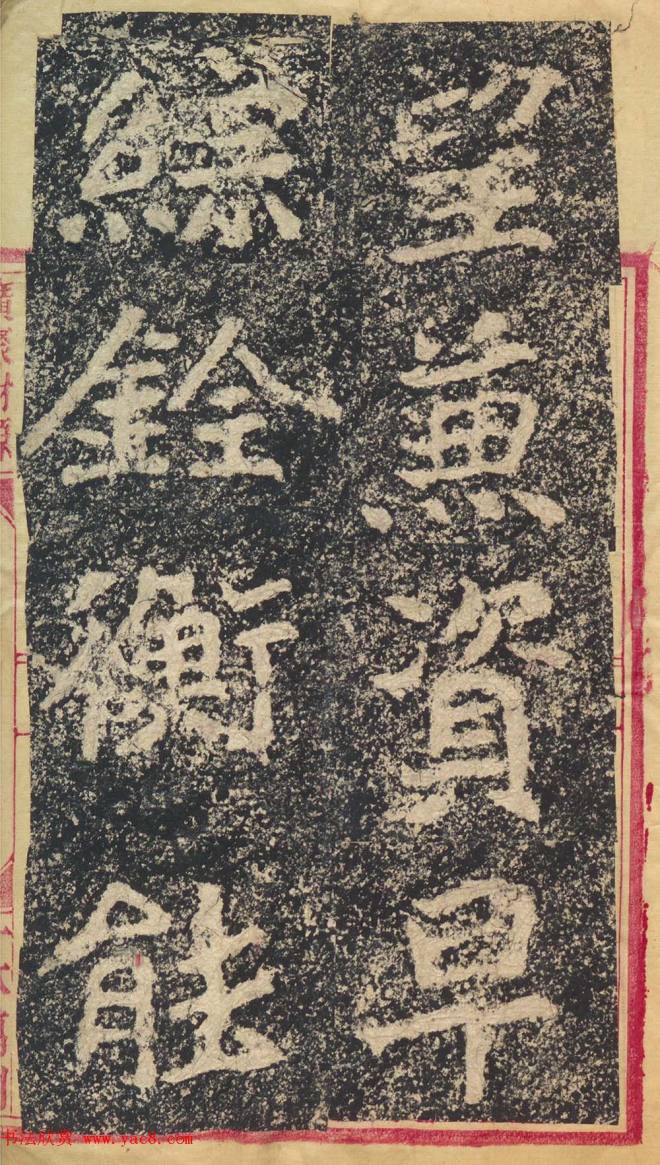 望兼資早
綜銓衡能
书法欣赏 www.yac8.com